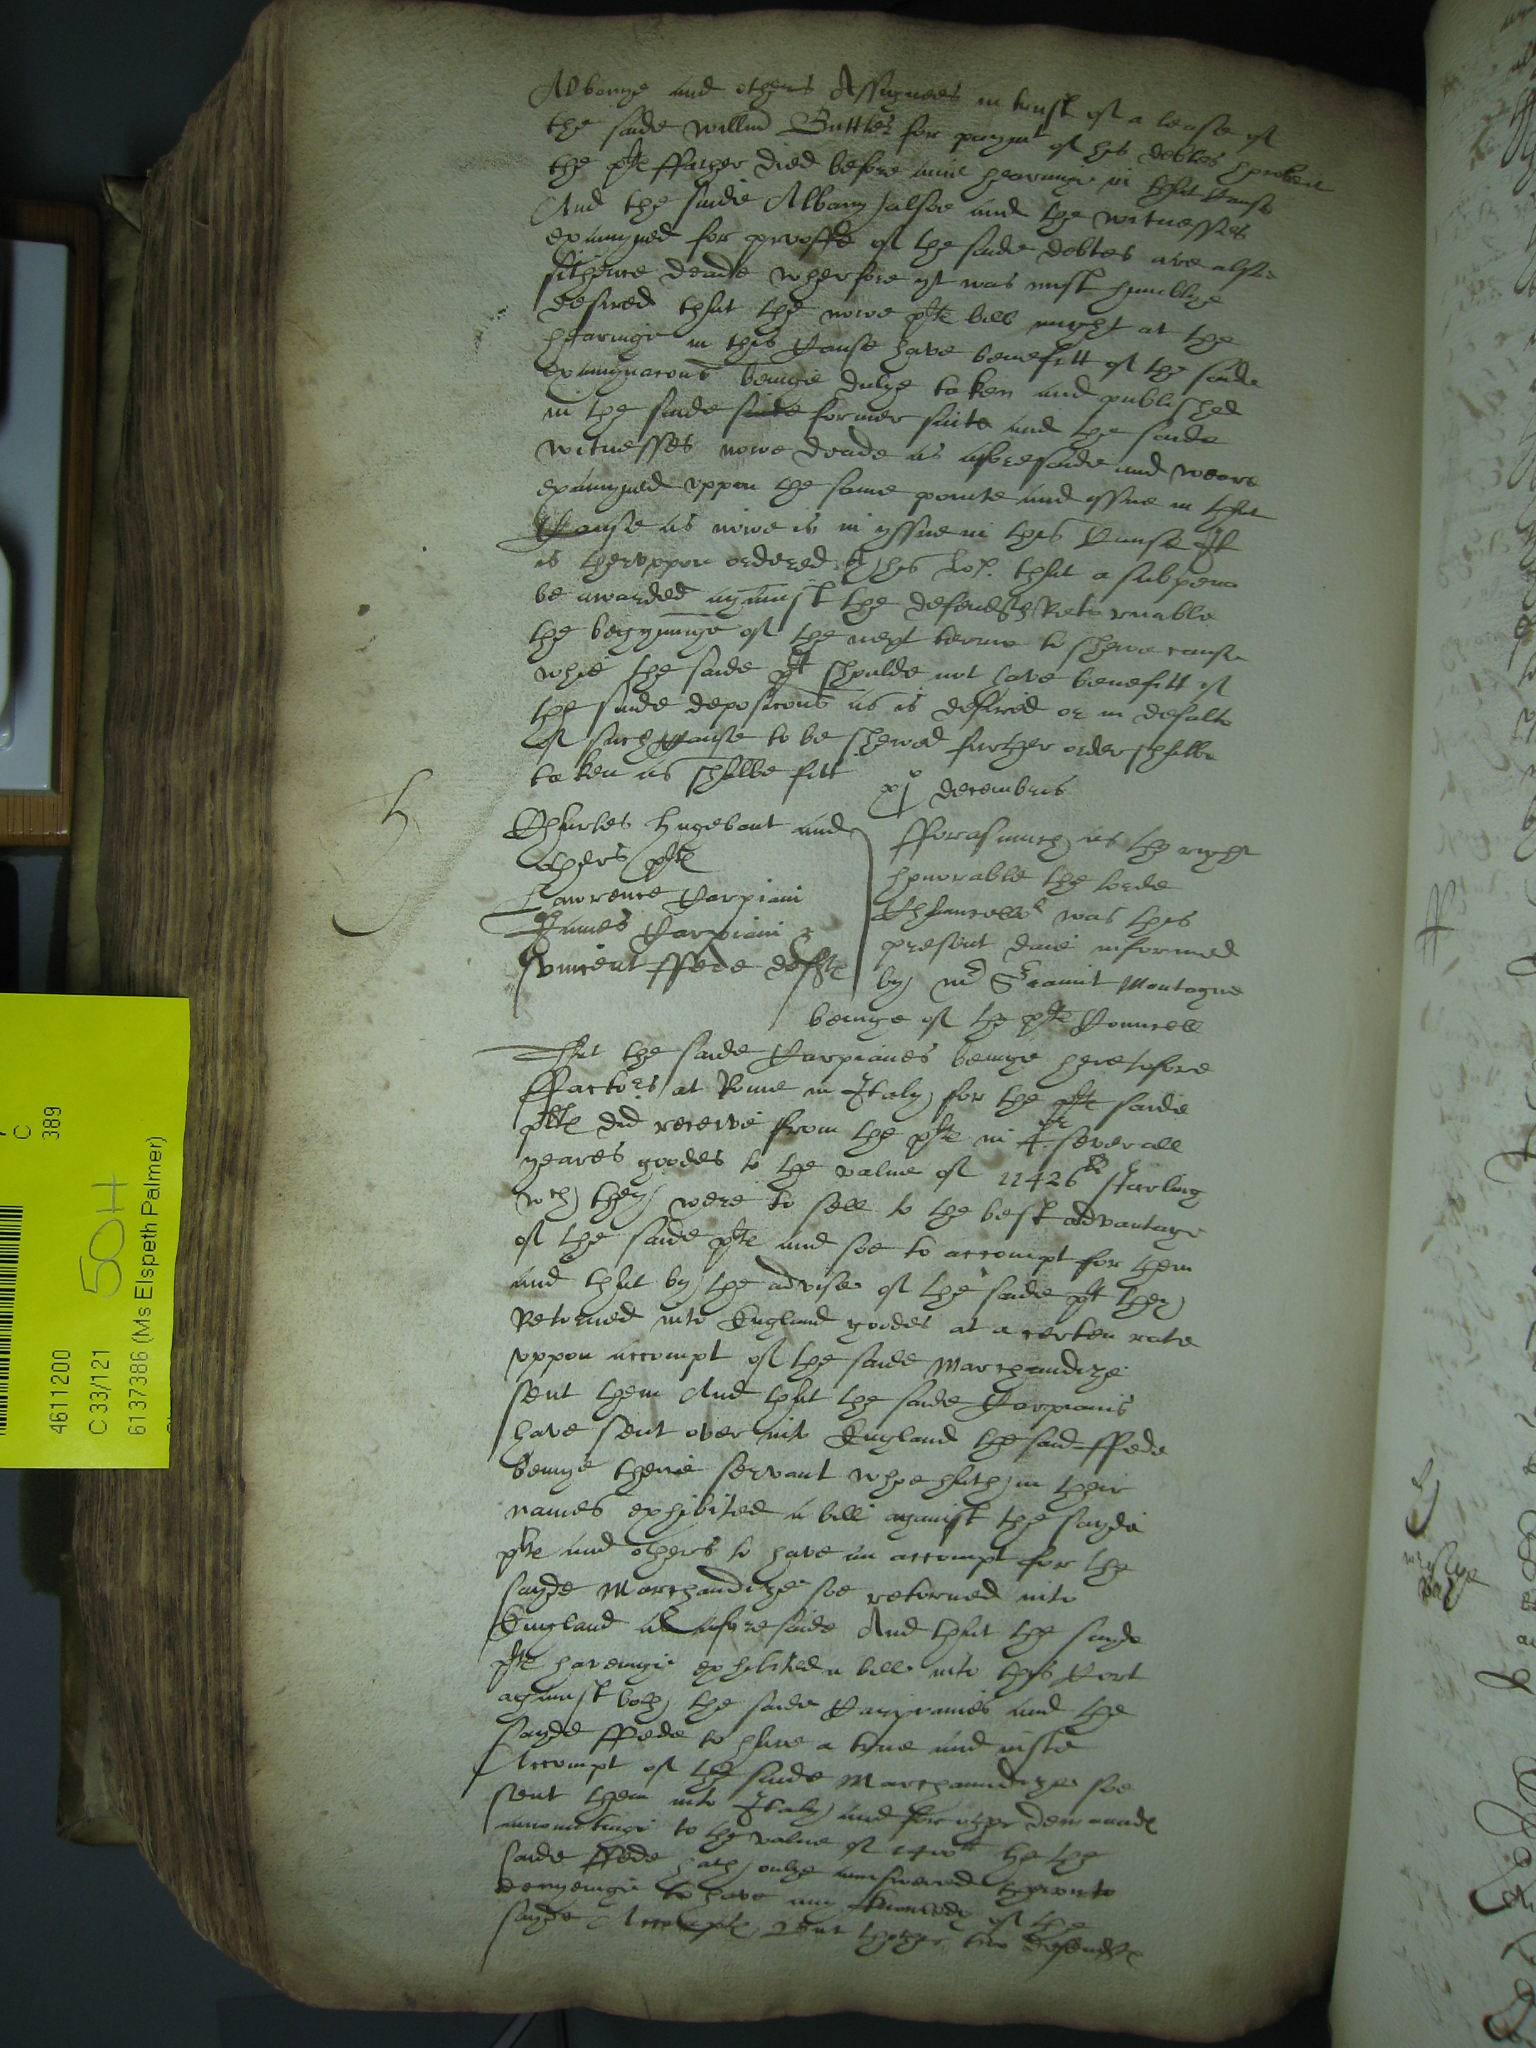 Albanye and others Assignees in trust of a lease of
the saide Willm Buttler for paymt of his debtes
the plte ffather died before anie hearinge in that Cause
And the saide Albany alsoe and the witnesses
examyned for prooffe of the saide debtes are alsoe
sithence deade wherfore yt was most humblye
desired that the nowe plte bill might at the
hearinge in this Cause have benefitt of the saide
examynacons beinge dulye taken and published
in the saide suite former suite and the saide
witnesses nowe deade as aforesaide and weare
examyned uppon the same pointe and yssue in that
Cause as nowe is in yssue in this Cause It
is thereuppon ordered by his Lop. that a subpena
be awarded against the defendt Retornable
the begynninge of the next terme to shewe cause
whie the saide plt shoulde not have benefitt of
the saide deposicons as is desired or in defalte
of such Cause to be shewed further order shalbe
taken as shalbe fitt
xj° decembris
Charles Hugebout and
others plte
Lawrence Carpiani
James Carpiani &
Vincent ffede defte
fforasmuch as the right
honorable the lorde
Chauncellr was this
present daie informed
by mr Srieaunt Montague
beinge of the plte Councell
That the saide Carpianes beinge heretofore
ffactors at Rome in Italy for the plte saide
plte did receive from the plte in 4or severall
yeares goodes to the value of 11426li starling
wch they were to sell to the best advantage
of the saide plte and soe to accompt for them
and that by the advise of the saide plt they
Retorned into England goodes at a certen rate
uppon accompt of the saide Marchandize
sent them And that the saide Carpianis
have sent over into England the said ffede
beinge theire servant whoe hath in their
names exhibited a bill against the sayde
plte and others to have an accompt for the
sayde Marchandize soe retorned into
England as aforesaide And that the sayde
plte haveinge exhibited a bill into this Cort
against both the saide Carpianies and the
sayde ffede to have a true and iuste
Accompt of the saide Marchaundize soe
sent them into Italy and for other demaunde
amountinge to the value of he the
saide ffede hath onlye answered thereunto
denyeinge to have any knowledg of the
sayde Accompte but thother two defendte
4611200
C 33/121
6137386 (Ms Elspeth Palmer)
50H
C
389